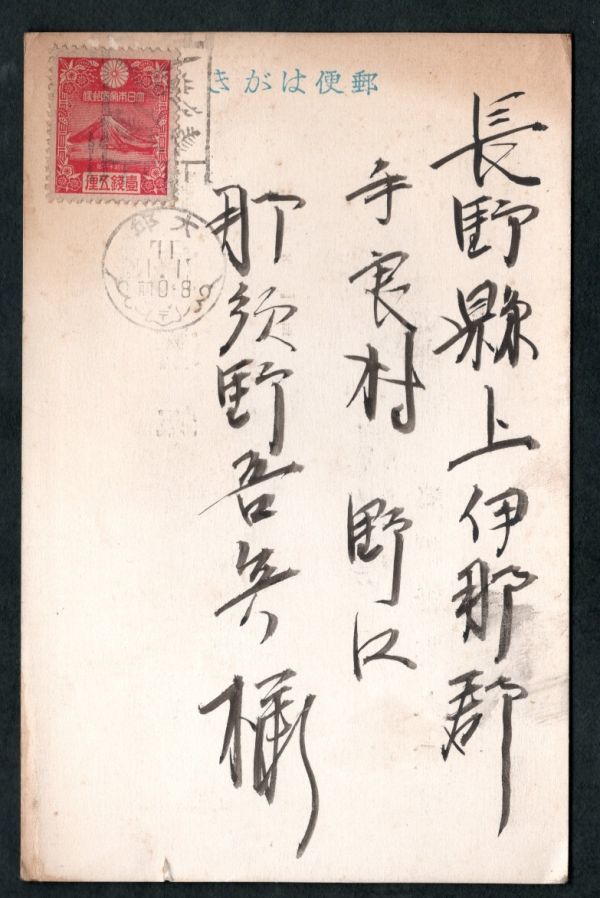 郵便はがき
大日本帝國郵便
壹錢五厘
大邱
11.1.1
前0-8
長野縣上伊那郡
手良村 野口
那須野吾兵様